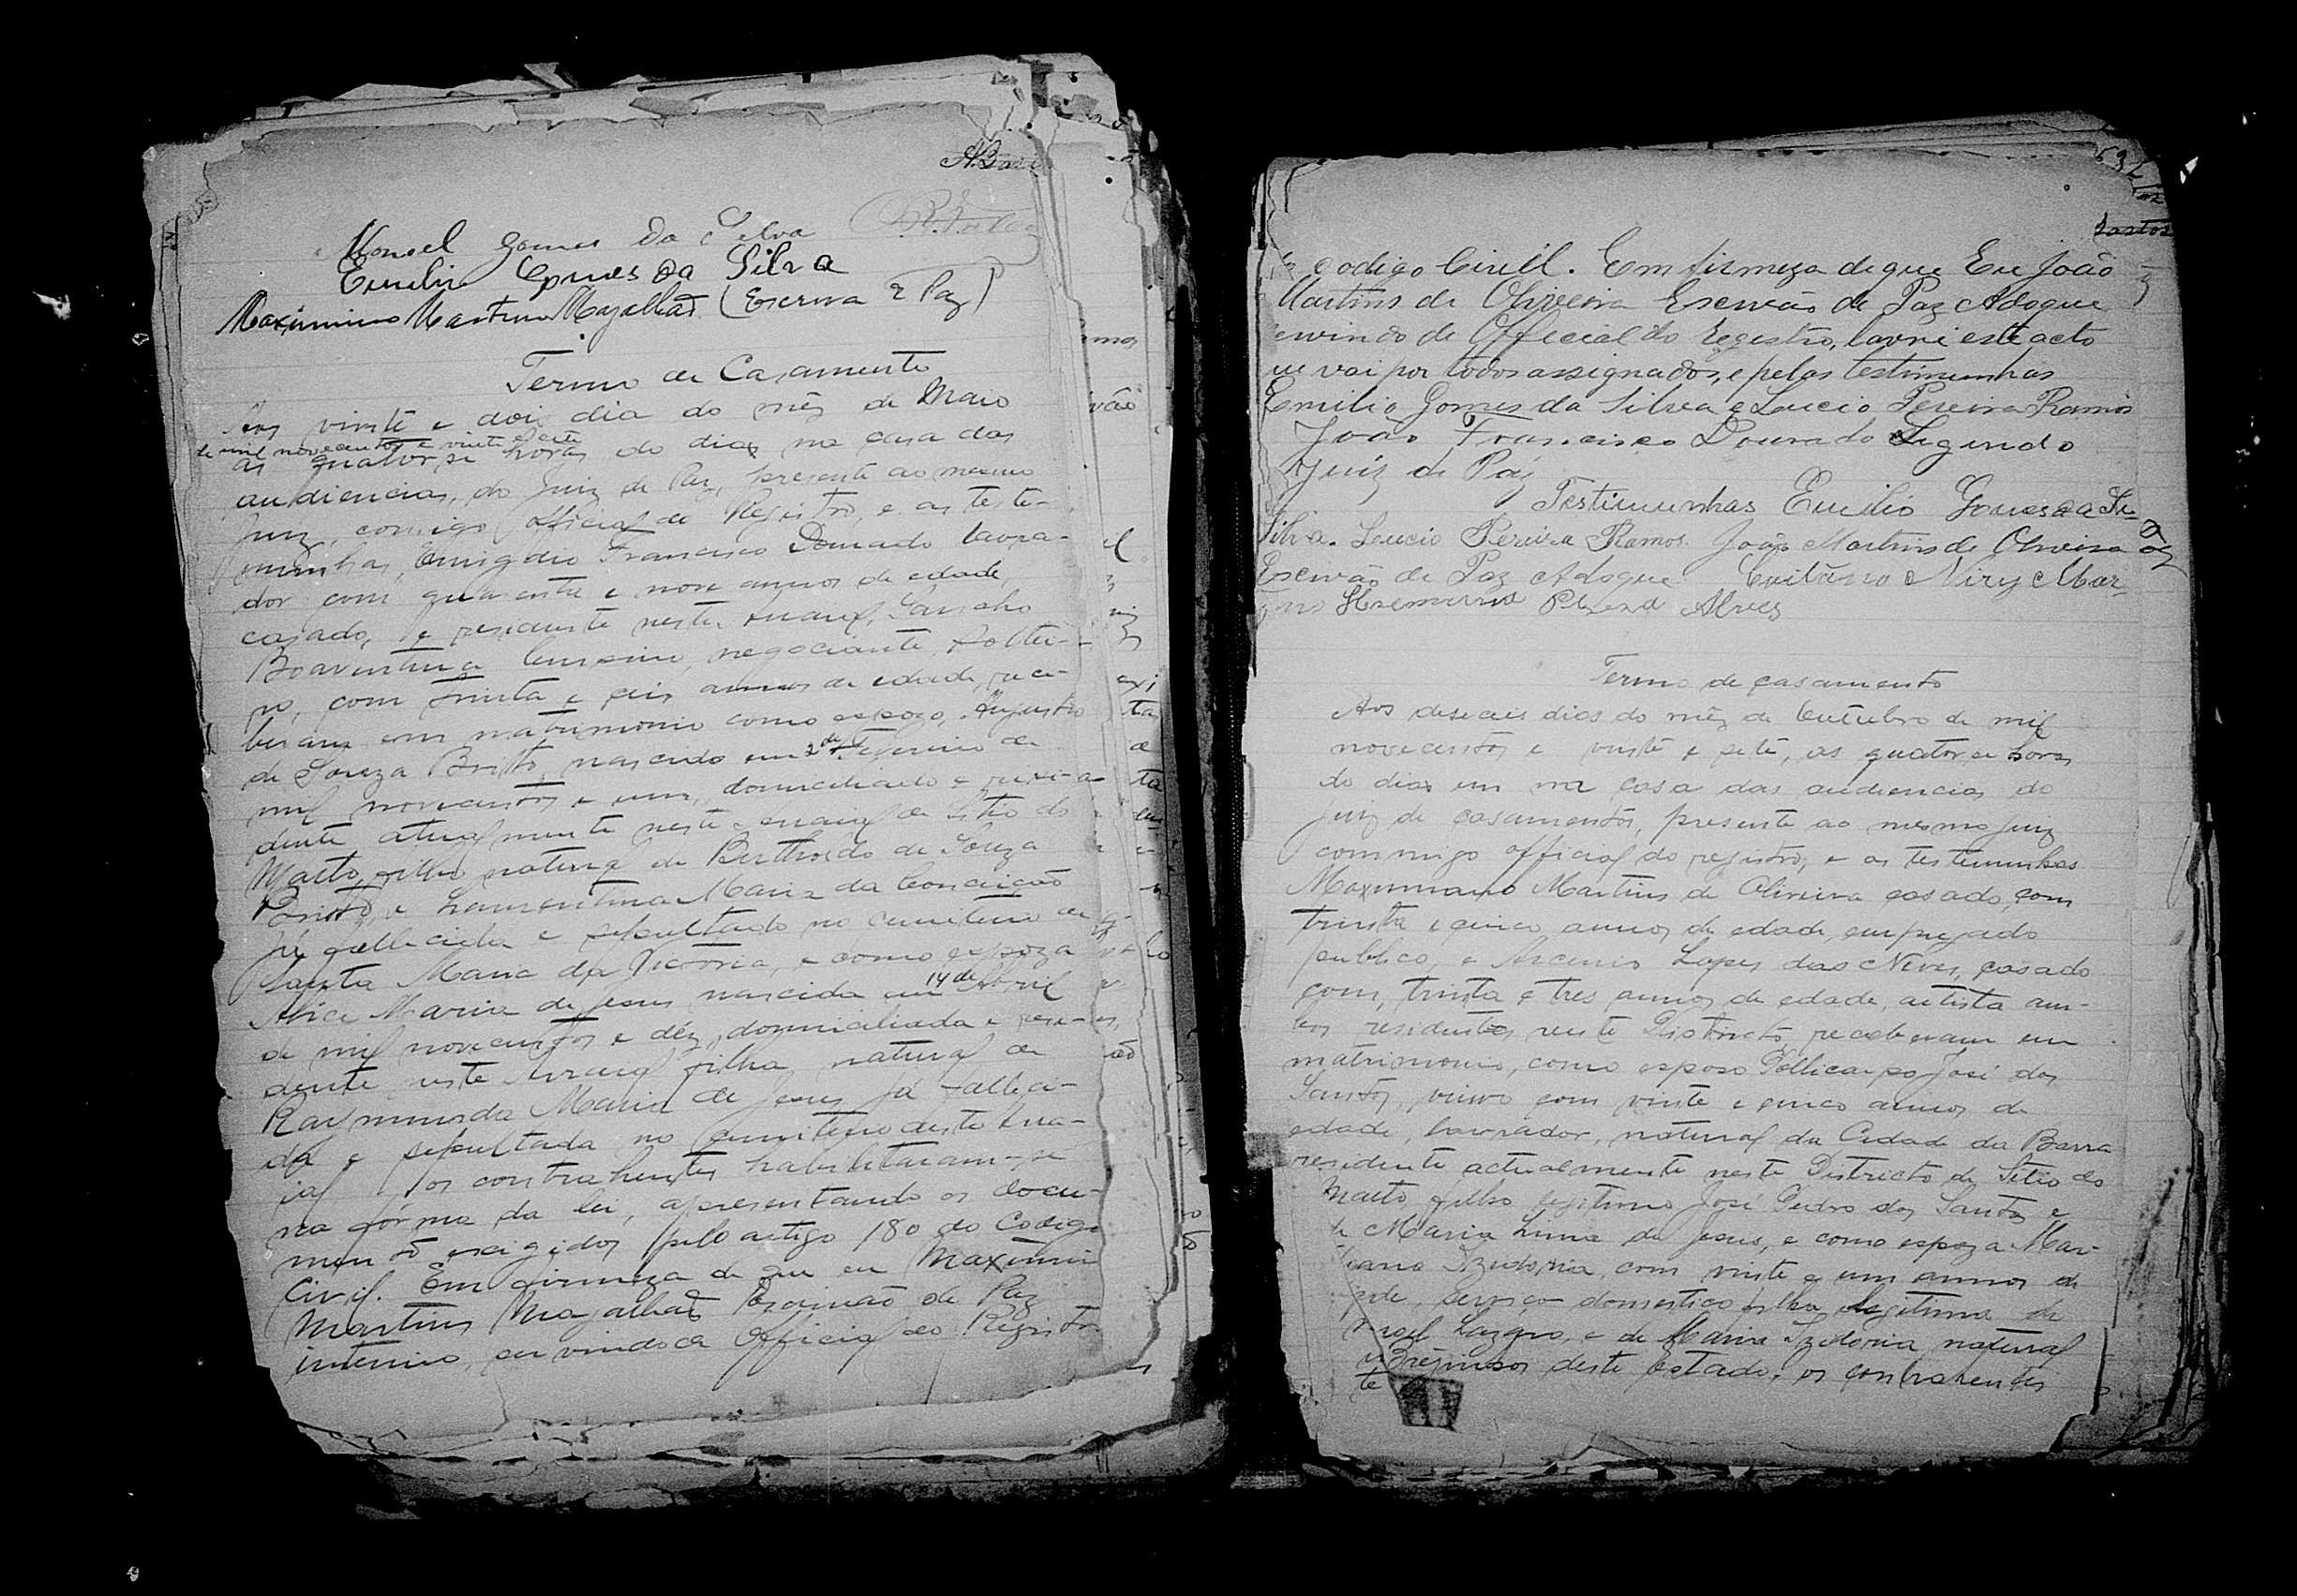 Manoel Gomes da Silva
Emilio Gomes da Silva
Maximino Martins Magalhães (Escrivã de Paz)
Termo de Casamento
Aos vinte e dois dia do mês de Maio
de mil novecentos e vinte e sete
as quatorse horas do dia na casa das
audiencias, do Juiz de Paz, presente ao mesmo
Juiz, comigo official do Registro, e as teste-
munhas, Emigdio Francisco Dourado lavra-
dor com quarenta e nove annos de edade,
casado, e residente neste arraial, Sancho
Boaventura, negociante, soltei-
ro, com trinta e seis annos de edade, rece-
beram em matrimonio como espozo, Augusto
de Souza Britto, nascido em 2 de Fevereiro de
mil novecentos e um, domiciliado e resi-
dente atualmente neste arraial de Sitio do
Matto, filho natural de Bertholdo de Souza
Britto, e Laurentina Maria da Conceição
já fallecida e sepultado no cemiterio de
Santa Maria da Victoria, e como espoza
Alice Maria de Jesus nascida em 14 de Abril
de mil novecentos e déz, domiciliada e resi-
dente neste arraial filha natural de
Raymunda Maria de Jesus já falleci-
da e sepultada no cemiterio deste arra-
ial, os contrahentes habilitaram-se
na fórma da lei, apresentando os docu-
mentõ exigidos pelo artigo 180 do Codigo
Civil. Em firmeza de que eu Maximi
Martins Magalhães Escrivão de Paz
interino, servindo de Official do Registro
codigo Civil. Em firmeza de que Eu João
Martins de Oliveira Escrivão de Paz Adoque
ervindo de Official do Registro, lavrei este acto
ue vai por todos assignados, e pelas testimunhas
Emilio Gomes da Silva e Lucio Pereira Ramos
João Francisco Dourado Segundo
Juiz de Paz
Testimunhas Emilio Gomes da
Silva. Lucio Pereira Ramos. João Martins de Oliveira
Escrivão de Paz Adoque
Pereira Alves
Termo de casamento
Aos deseseis dias do mês de Outubro de mil
novecentos e vinte e sete, as quatorse horas
do dia em na casa das audiencias do
Juiz de casamentos, presente ao mesmo Juiz
commigo official do registro, e as testemunhas
Maximiano Martins de Oliveira casado, com
trinta e cinco annos de edade, empregado
publico, e Arcenio Lopes das Neves, casado
com, trinta e tres annos de edade, artista am-
bos residentes neste Districto, receberam em
matrimonio, como esposo Pollicarpo José dos
Santos, viuvo com vinte e cinco annos de
edade, lavrador, natural da Cidade da Barra
residente actualmente neste Districto de Sitio do
Matto, filho legitimo José Pedro dos Santos e
de Maria Lima de Jesus, e como espoza Mar-
iana Izidoria, com vinte e um annos de
serviço domestico filha legitima de
noel Lazaro, e de Maria Izidoria natural
deste Estado. os contrahentes
te